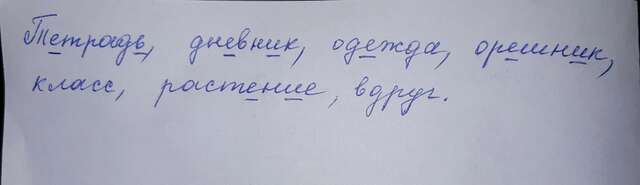 Тетрадь, дневник, одежда, орешник,
класс, растение, вдруг.